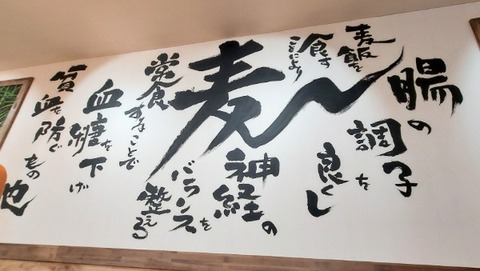 麦飯を
食す
ことにより
腸の
調子を
良くし
麦
神経の
バランスを
整える
常食
することで
血糖を下げ
貧血を防ぐ
もの也